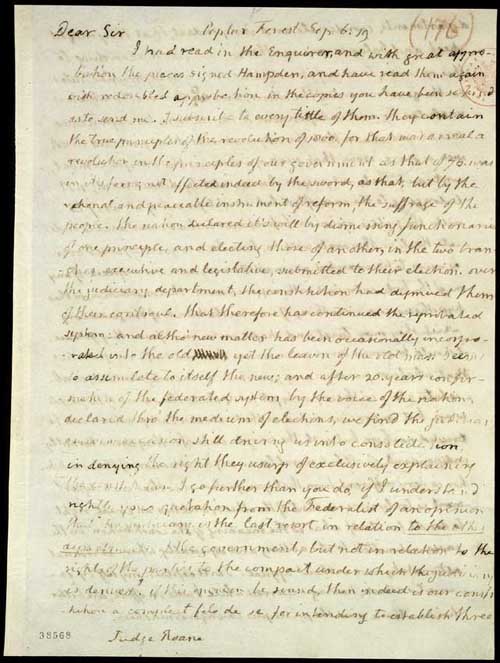 176
Dear Sir Poplar Forest Sep. 6. 19
I had read in the Enquirer, and with great appro-
bation the pieces signed Hampden, and have read them again
with redoubled approbation in the copies you have been so kind
as to send me. I subscribe to every tittle of them. they contain
the true principles of the revolution of 1800. for that was as real a
revolution in the principles of our government as that of 76. was
in it's form; not effected indeed by the sword, as that, but by the
rational and peaceable instrument of reform, the suffrage of the
people. the nation declared it's will by dismissing functionaries
of one principle, and electing those of another, in the two bran-
ches, executive and legislative, submitted to their election. over
the judiciary department, the constitution had deprived them
of their controul. that therefore has continued the reprobated
system: and altho' new matter has been occasionally incorpo-
-rated into the old, yet the leaven of the old mass seems
to assimilate to itself the new; and after 20. years confir-
mation of the federated system by the voice of the nation,
declared thro' the medium of elections, we find the
on occasion still driving us into consolidation
in denying the right they usurp of exclusively explaining
the constitution I go further than you do, if I understand
rightly your quotation from the Federalist of an opinion
that the judiciary is the last resort in relation to the oth
departments of the government, but not in relation to the
rights of the parties to the compact under which the judiciary
is derived, if this opinion be sound, then indeed is our consti
tution a complete felo de se. for intending to establish three
38568
Judge Roane